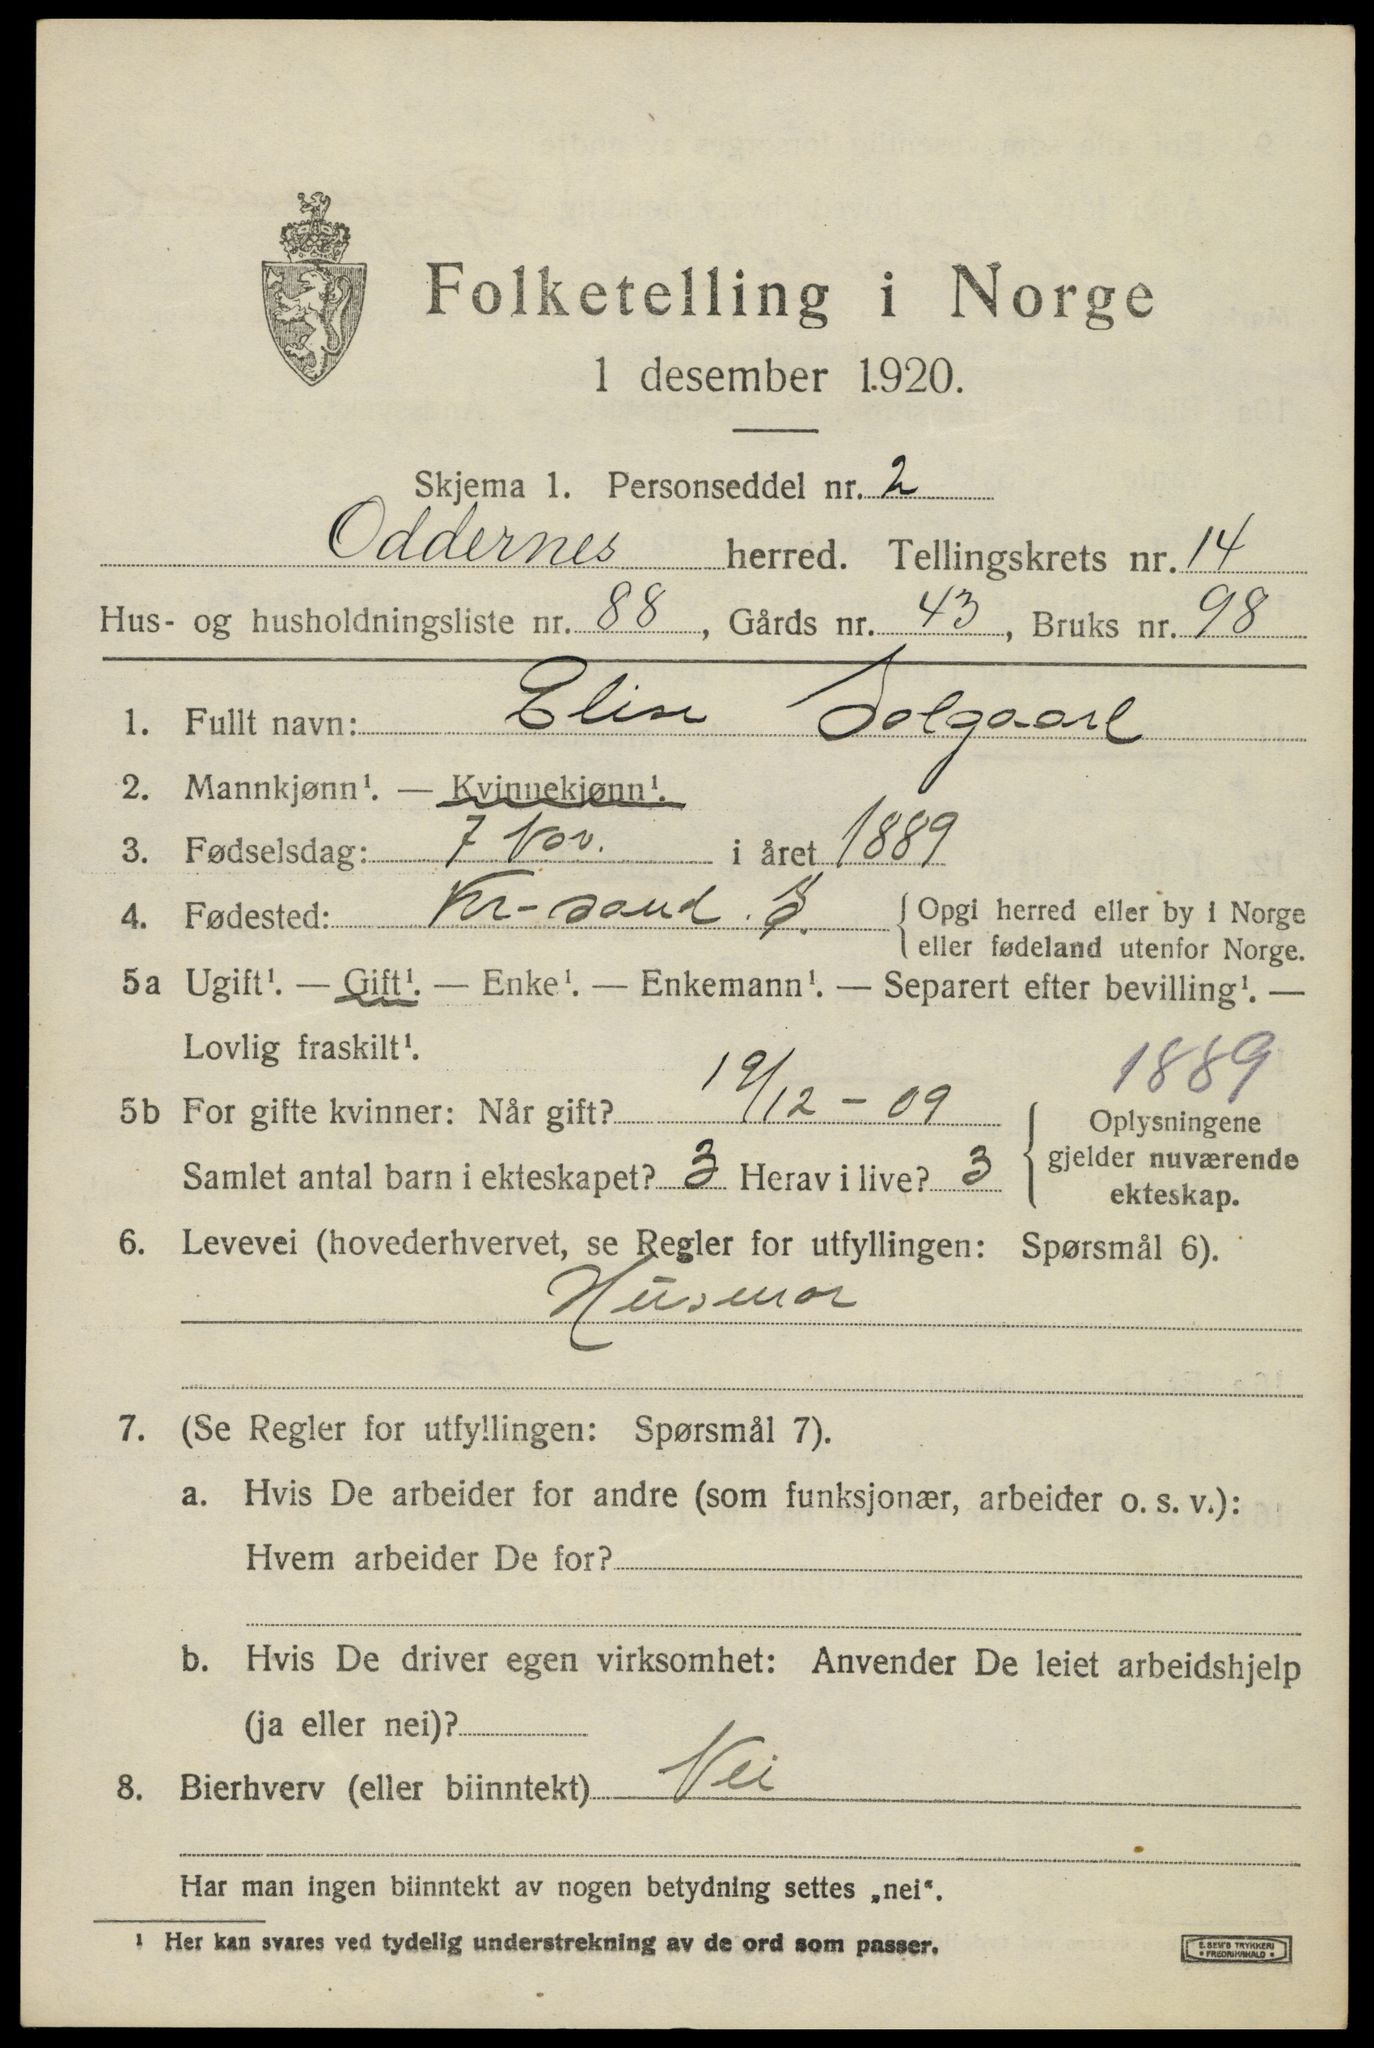 Folketelling i Norge
1 desember 1920.
Skjema 1. Personseddel nr. 2
Oddernes herred. Tellingskrets nr. 14
Hus- og husholdningsliste nr. 88, Gårds nr. 43, Bruks nr. 98
1. Fullt navn: Elise Solgaard
2. Mannkjønn¹. — Kvinnekjønn¹.
3. Fødselsdag: 7 Nov. i året 1889
4. Fødested: Kr-sand. S. Opgi herred eller by i Norge
eller fødeland utenfor Norge.
5a Ugift¹. — Gift¹. — Enke¹. — Enkemann¹. — Separert efter bevilling¹. —
Lovlig fraskilt¹.
1889
5b For gifte kvinner: Når gift? 19/12 - 09 Oplysningene
gjelder nuværende
ekteskap.
Samlet antal barn i ekteskapet? 3 Herav i live? 3
6. Levevei (hovederhvervet, se Regler for utfyllingen: Spørsmål 6).
Husmor
7. (Se Regler for utfyllingen: Spørsmål 7).
a. Hvis De arbeider for andre (som funksjonær, arbeider o. s. v.):
Hvem arbeider De for?
b. Hvis De driver egen virksomhet: Anvender De leiet arbeidshjelp
(ja eller nei)?
8. Bierhverv (eller biinntekt) Nei
Har man ingen biinntekt av nogen betydning settes „nei“.
¹ Her kan svares ved tydelig understrekning av de ord som passer.
E. SEM'S TRYKKERI
* FREDRIKSHALD *